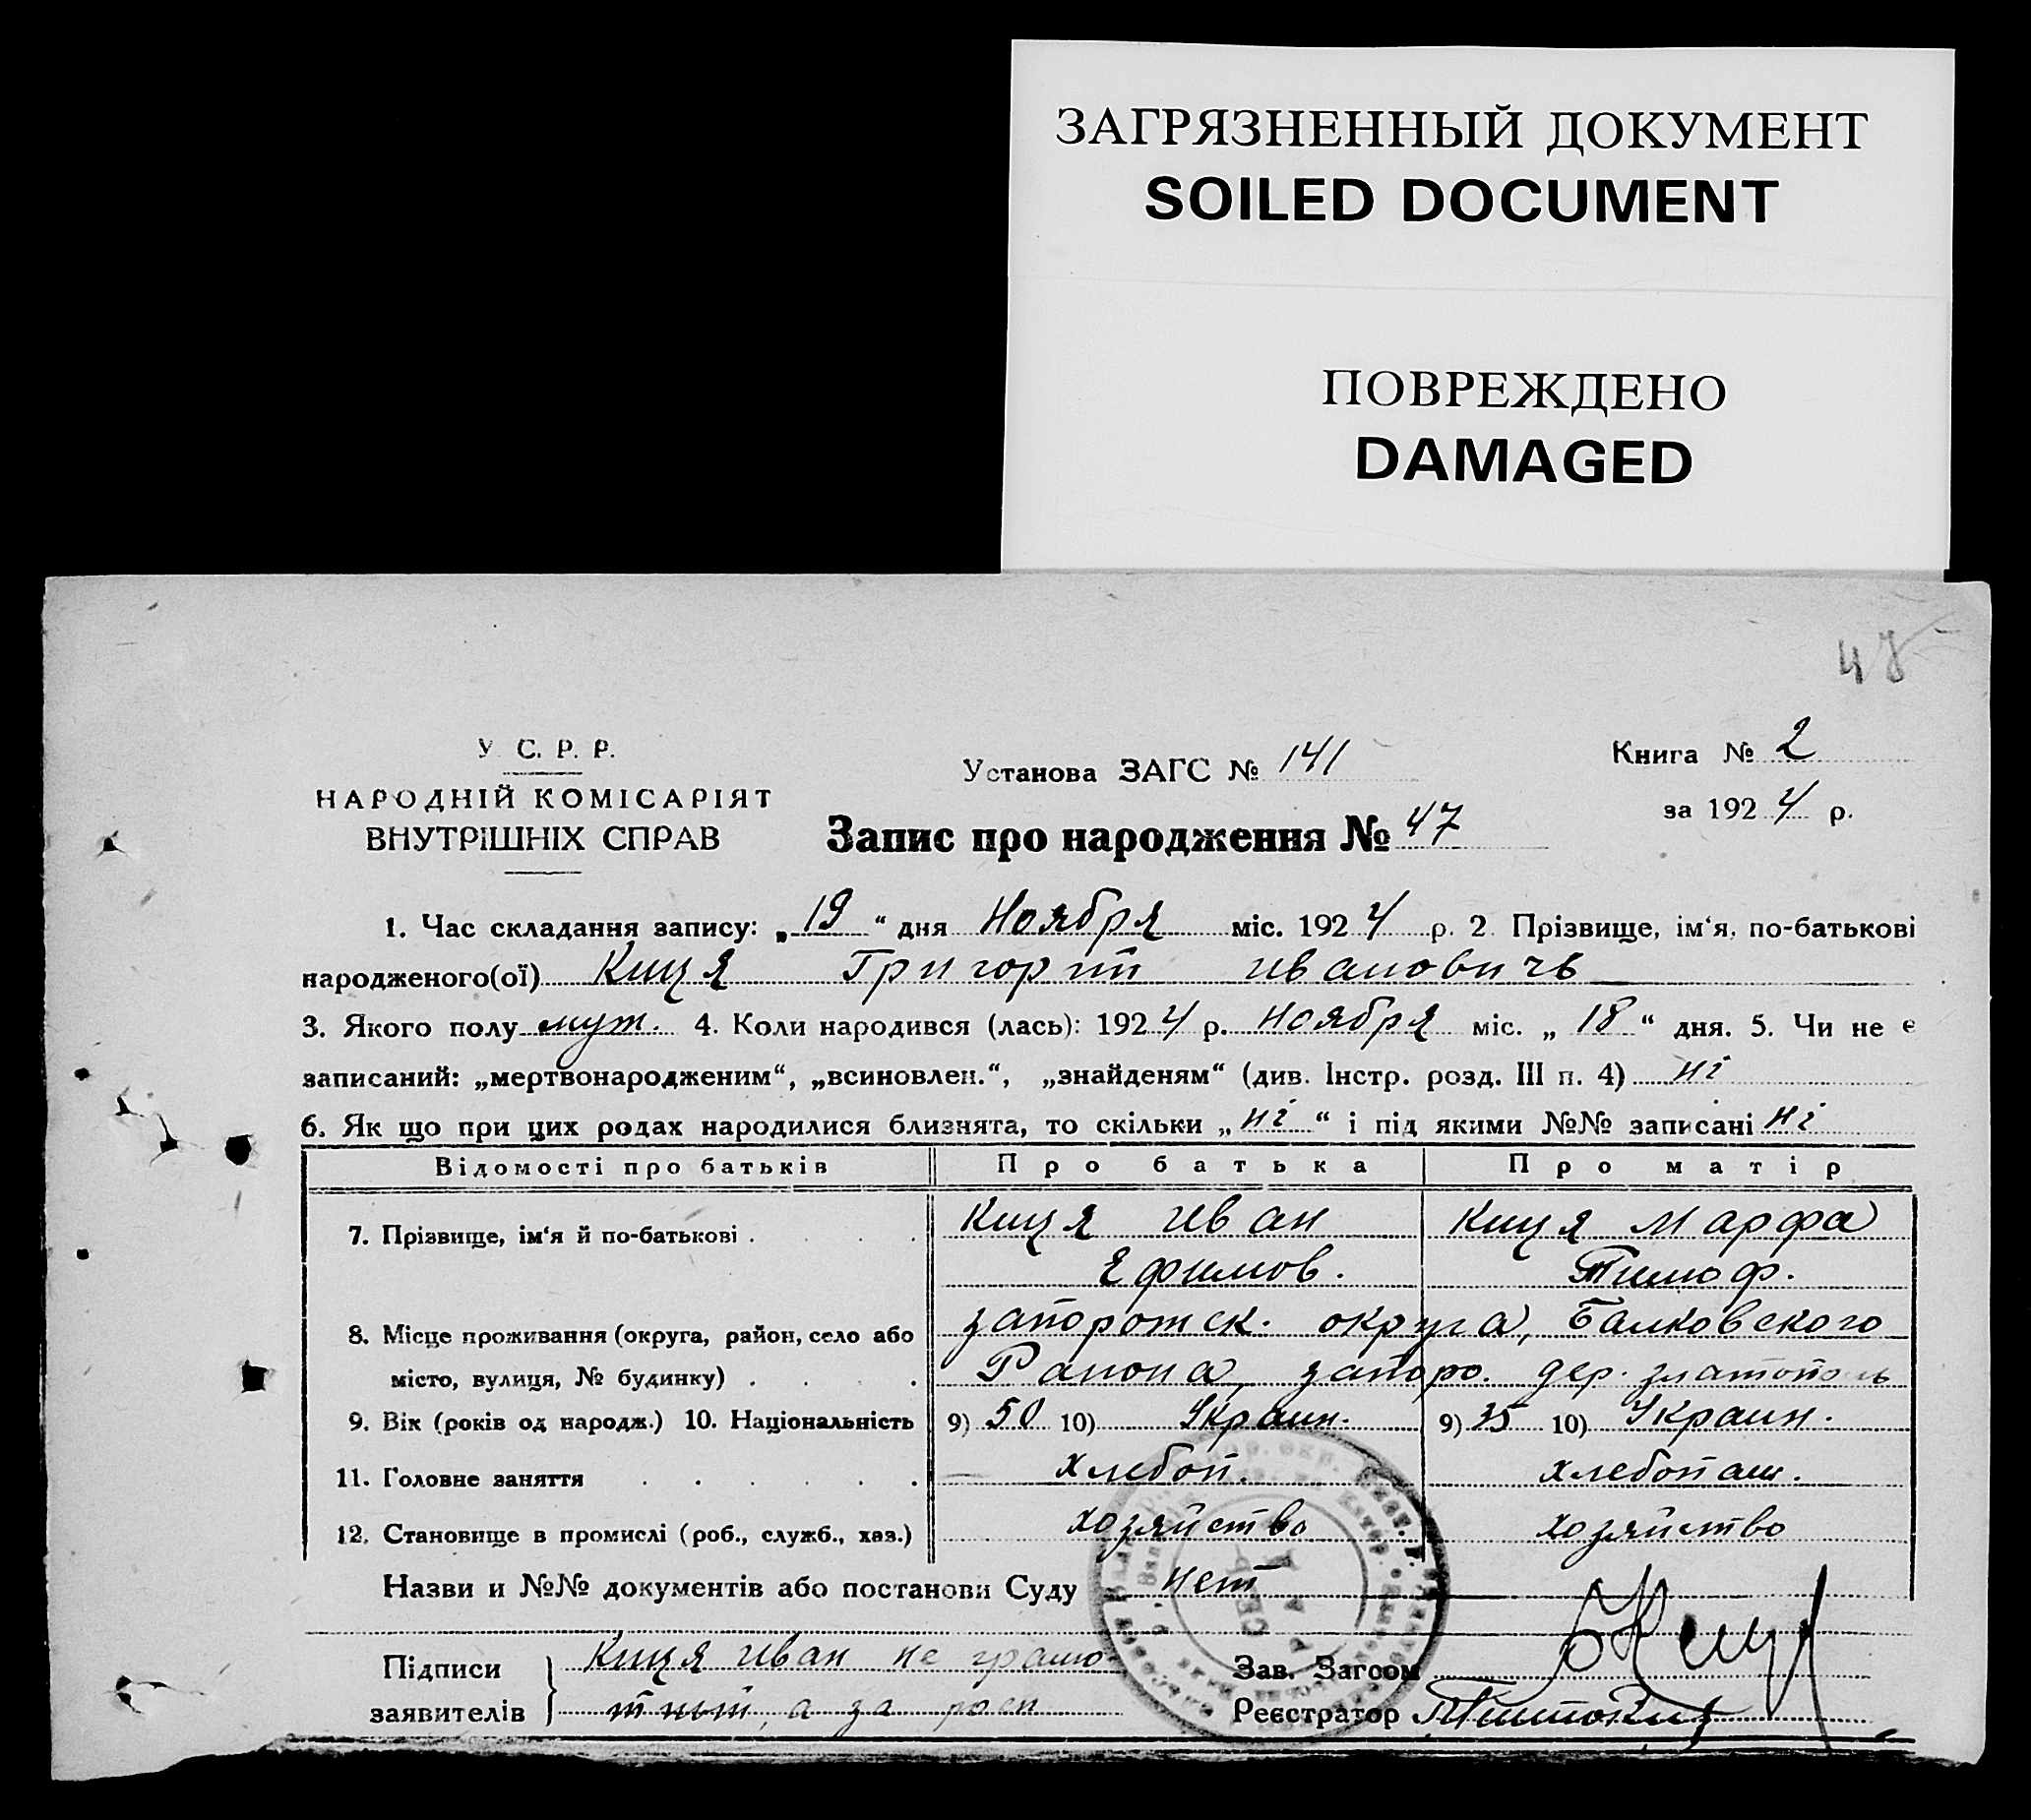 ЗАГРЯЗНЕННЫЙ ДОКУМЕНТ
SOILED DOCUMENT
ПОВРЕЖДЕНО
DAMAGED
У С. Р. Р.
НАРОДНІЙ КОМІСАРІЯТ
ВНУТРІШНІХ СПРАВ
Установа ЗАГС № 141
Книга № 2
за 1924 р.
Запис про народження № 47
1. Час складання запису: „19“ дня Ноября міс. 1924 р. 2. Прізвище, ім‘я, по-батькові
народженого(ої) Киця Григорий Иванович
3. Якого полу муж. 4. Коли народився (лась): 1924 р. Ноября міс. „18“ дня. 5. Чи не є
записаний: „мертвонародженим“, „всиновлен.“, „знайденям“ (див. Інстр. розд. III п. 4) ні
6. Як що при цих родах народилися близнята, то скільки „ні“ і під якими №№ записані ні
Відомості про батьків Про батька Про матір
7. Прізвище, ім‘я й по-батькові . . . . Киця Иван Киця Марфа
Ефимов. Тимоф.
8. Місце проживання (округа, район, село або Запорожск. округа, Балковского
місто, вулиця, № будинку) . . . . Района, дер. Златополь
9. Вік (років од народж.) 10. Національність 9) 50 10) Украин. 9) 35 10) Украин.
11. Головне заняття . . . . . . хлебоп. хлебопаш.
12. Становище в промислі (роб., служб., хаз.) хозяйство хозяйство
Назви и №№ документів або постанови Суду нет
Підписи Киця Иван не грамо-
заявителів тный, а за
Зав. Загсом
Реєстратор